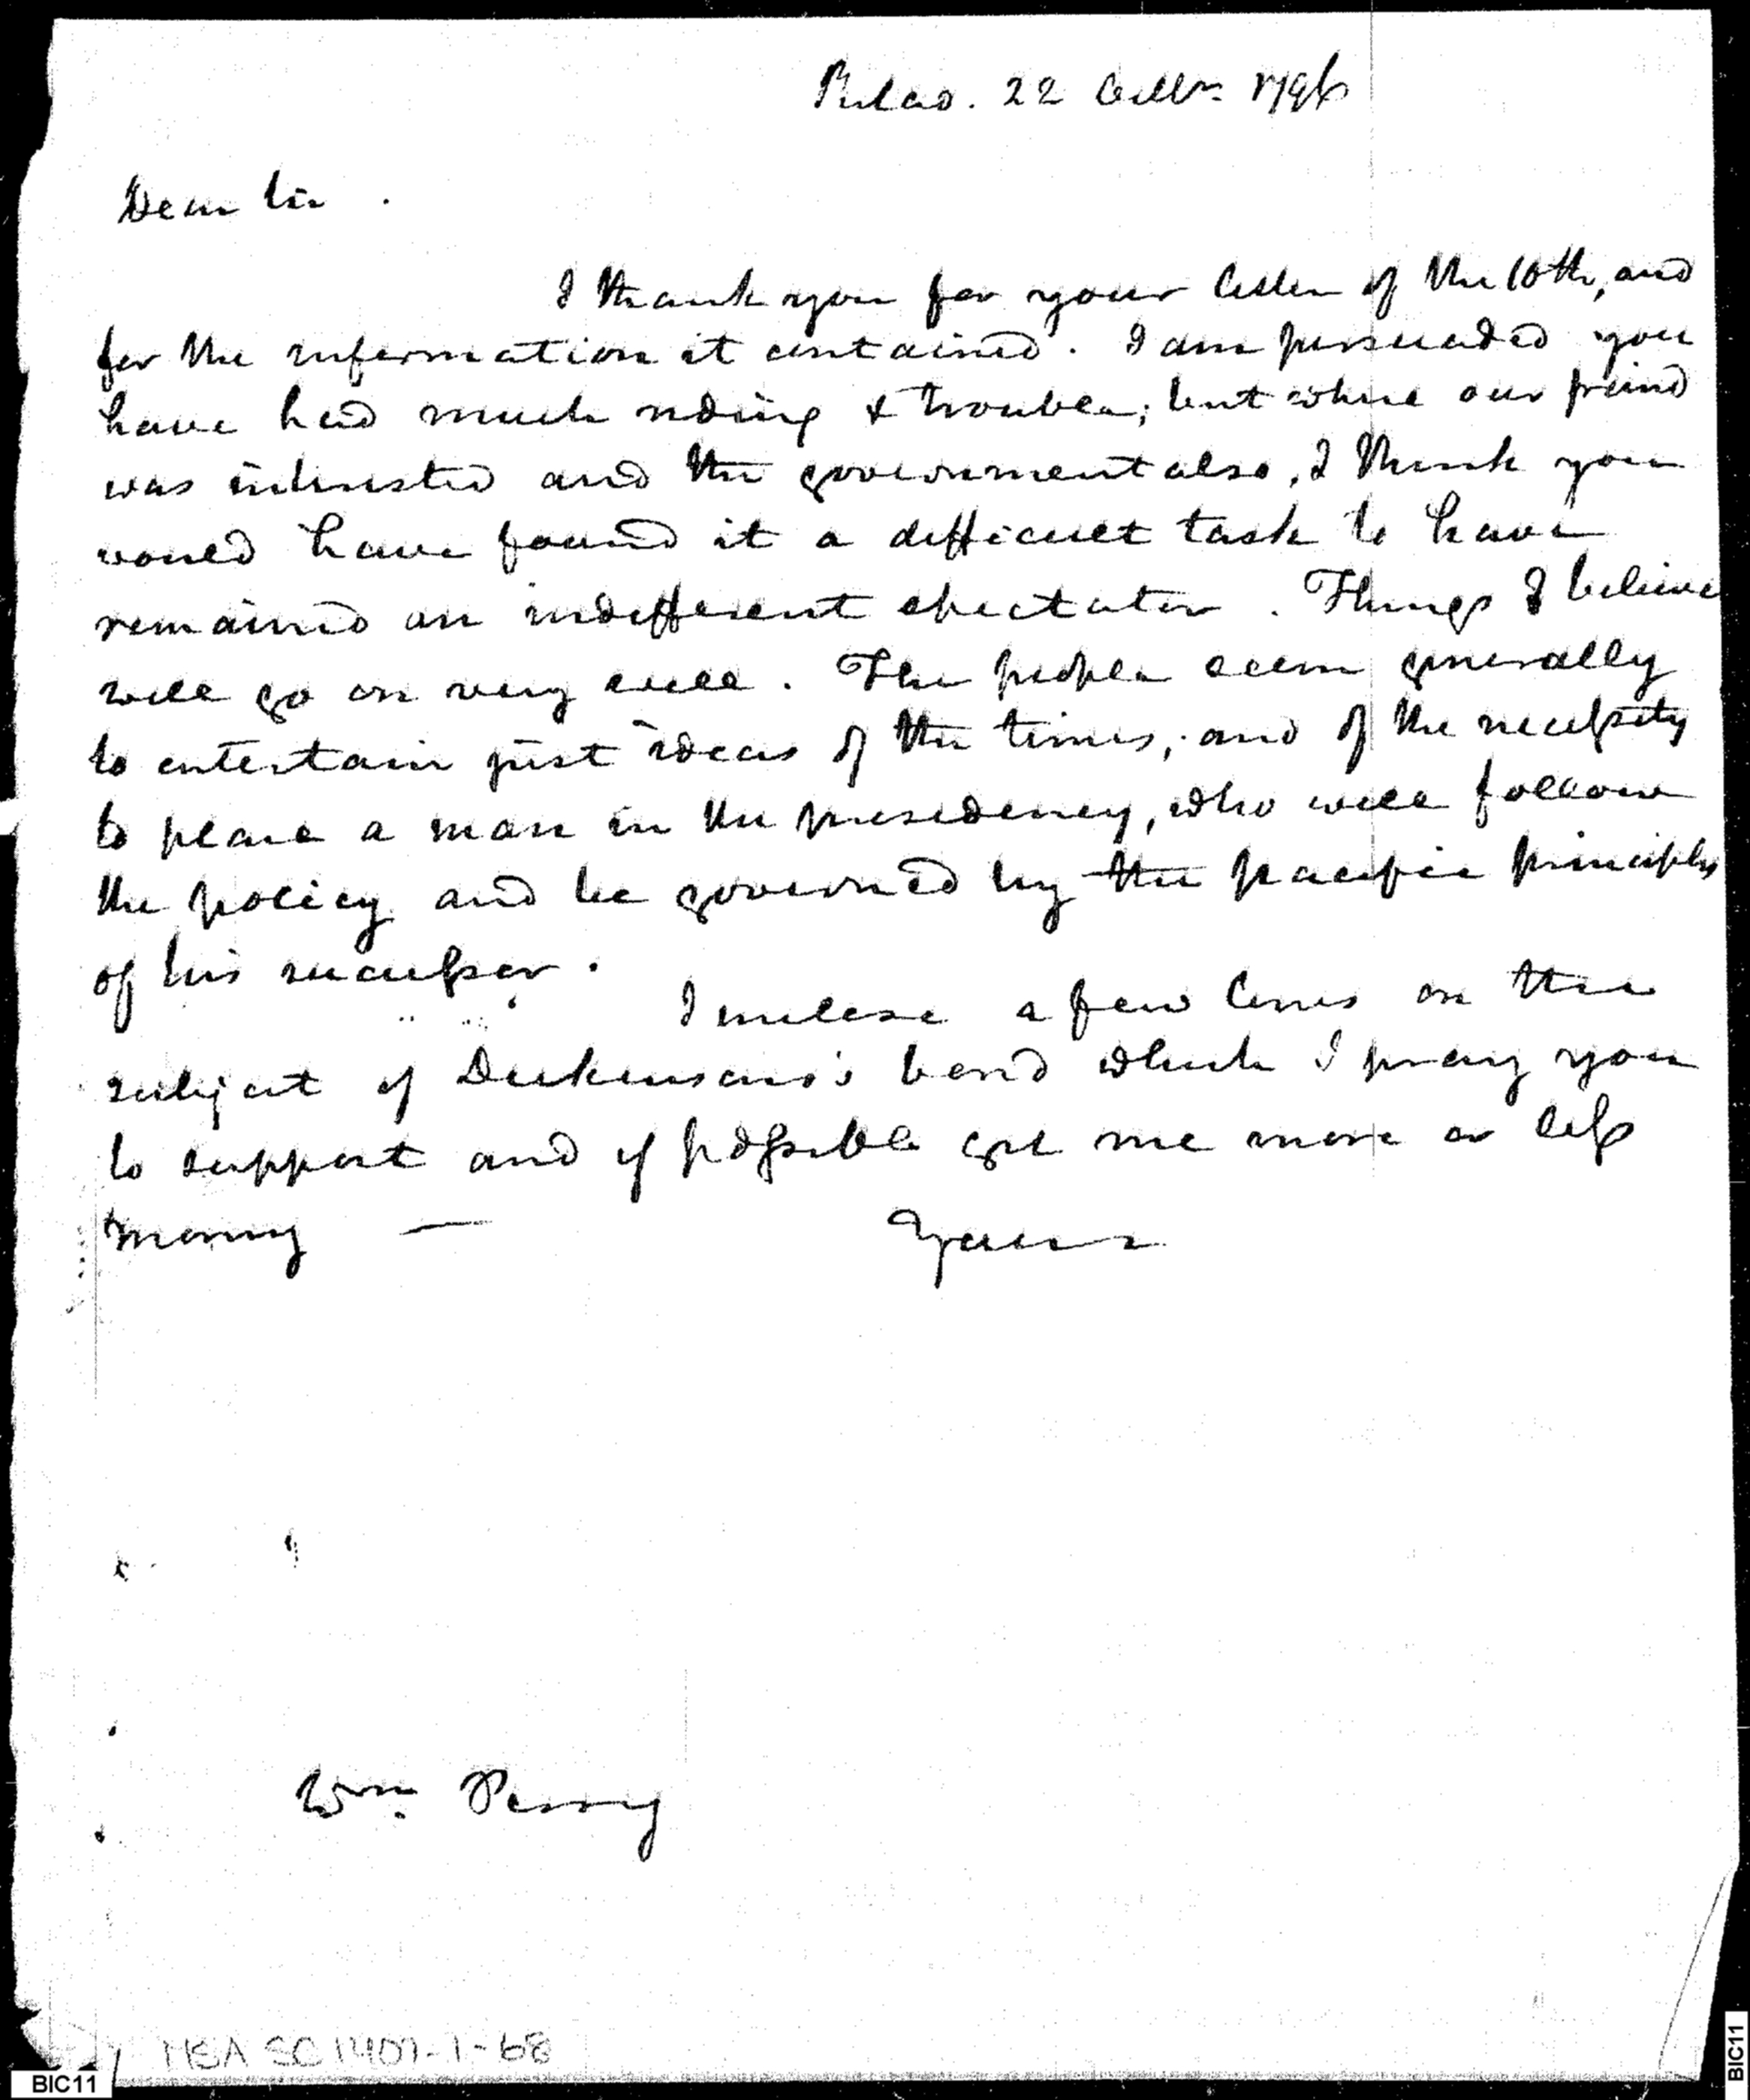 Philad. 22 Octbr. 1796
Dear Sir.
I thank you for your letter of the 10th, and
for the information it contained. I am persuaded you
have had much riding & trouble; but where our freind
was interested and the government also, I think you
would have found it a difficult task to have
remained an indifferent spectator. Things I believe
will go on very well. The people seem generally
to entertain just ideas of the times, and of the necessity
to place a man in the presidency, who will follow
the policy and be governed by the pacific principles
of his successor.
I inclose a few lines on the
subject of Dickinson's bond which I pray you
to support and if possible get me more or less
money —
Yours
Wm. Perry
MSA SC 1407-1-68
BIC11
BIC11